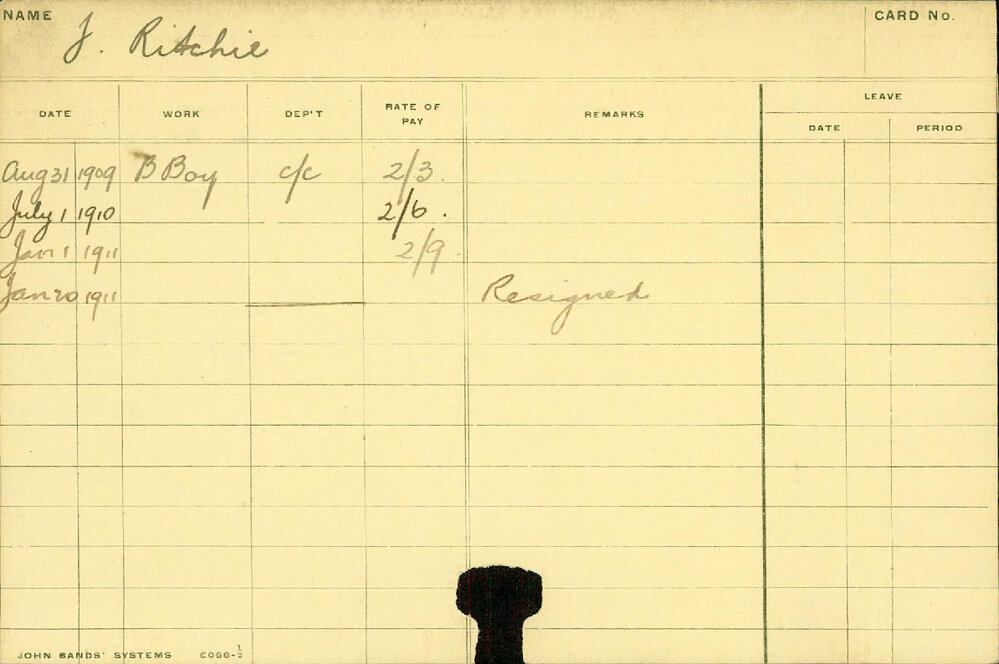 NAME J. Ritchie CARD No.
DATE WORK DEP'T RATE OF PAY REMARKS LEAVE
DATE PERIOD
Aug 31 1909 B Boy c/c 2/3.
July 1 1910 2/6.
Jan 1 1911 2/9.
Jan 20 1911 Resigned
JOHN SANDS' SYSTEMS